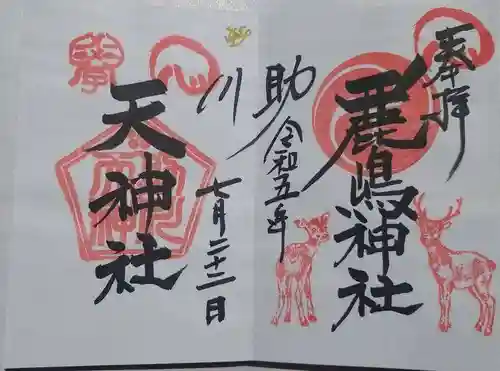 奉拝
鹿嶋神社
助川
令和五年
七月二十一日
天神社